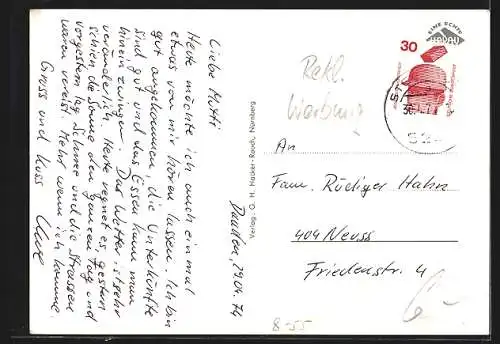 Dautlen, 29.04.74
Liebe Mutti
Heute möchte ich auch einmal
etwas von mir hören lassen. Ich bin
gut angekommen, die Unterkünfte
sind gut und das Essen kann man
hinein zwingen. Das Wetter ist sehr
veränderlich. Heute regnet es, gestern
schien die Sonne den ganzen Tag und
vorgestern lag Schnee und die Strassen
waren vereist. Mehr wenn ich komme.
Gruss und Kuss
Verlag: G. H. Hacker-Rauch, Nürnberg
30
Rekl.
Werbung
An
Fam. Rüdiger Hahn
404 Neuss
Friedenstr. 4
8-55